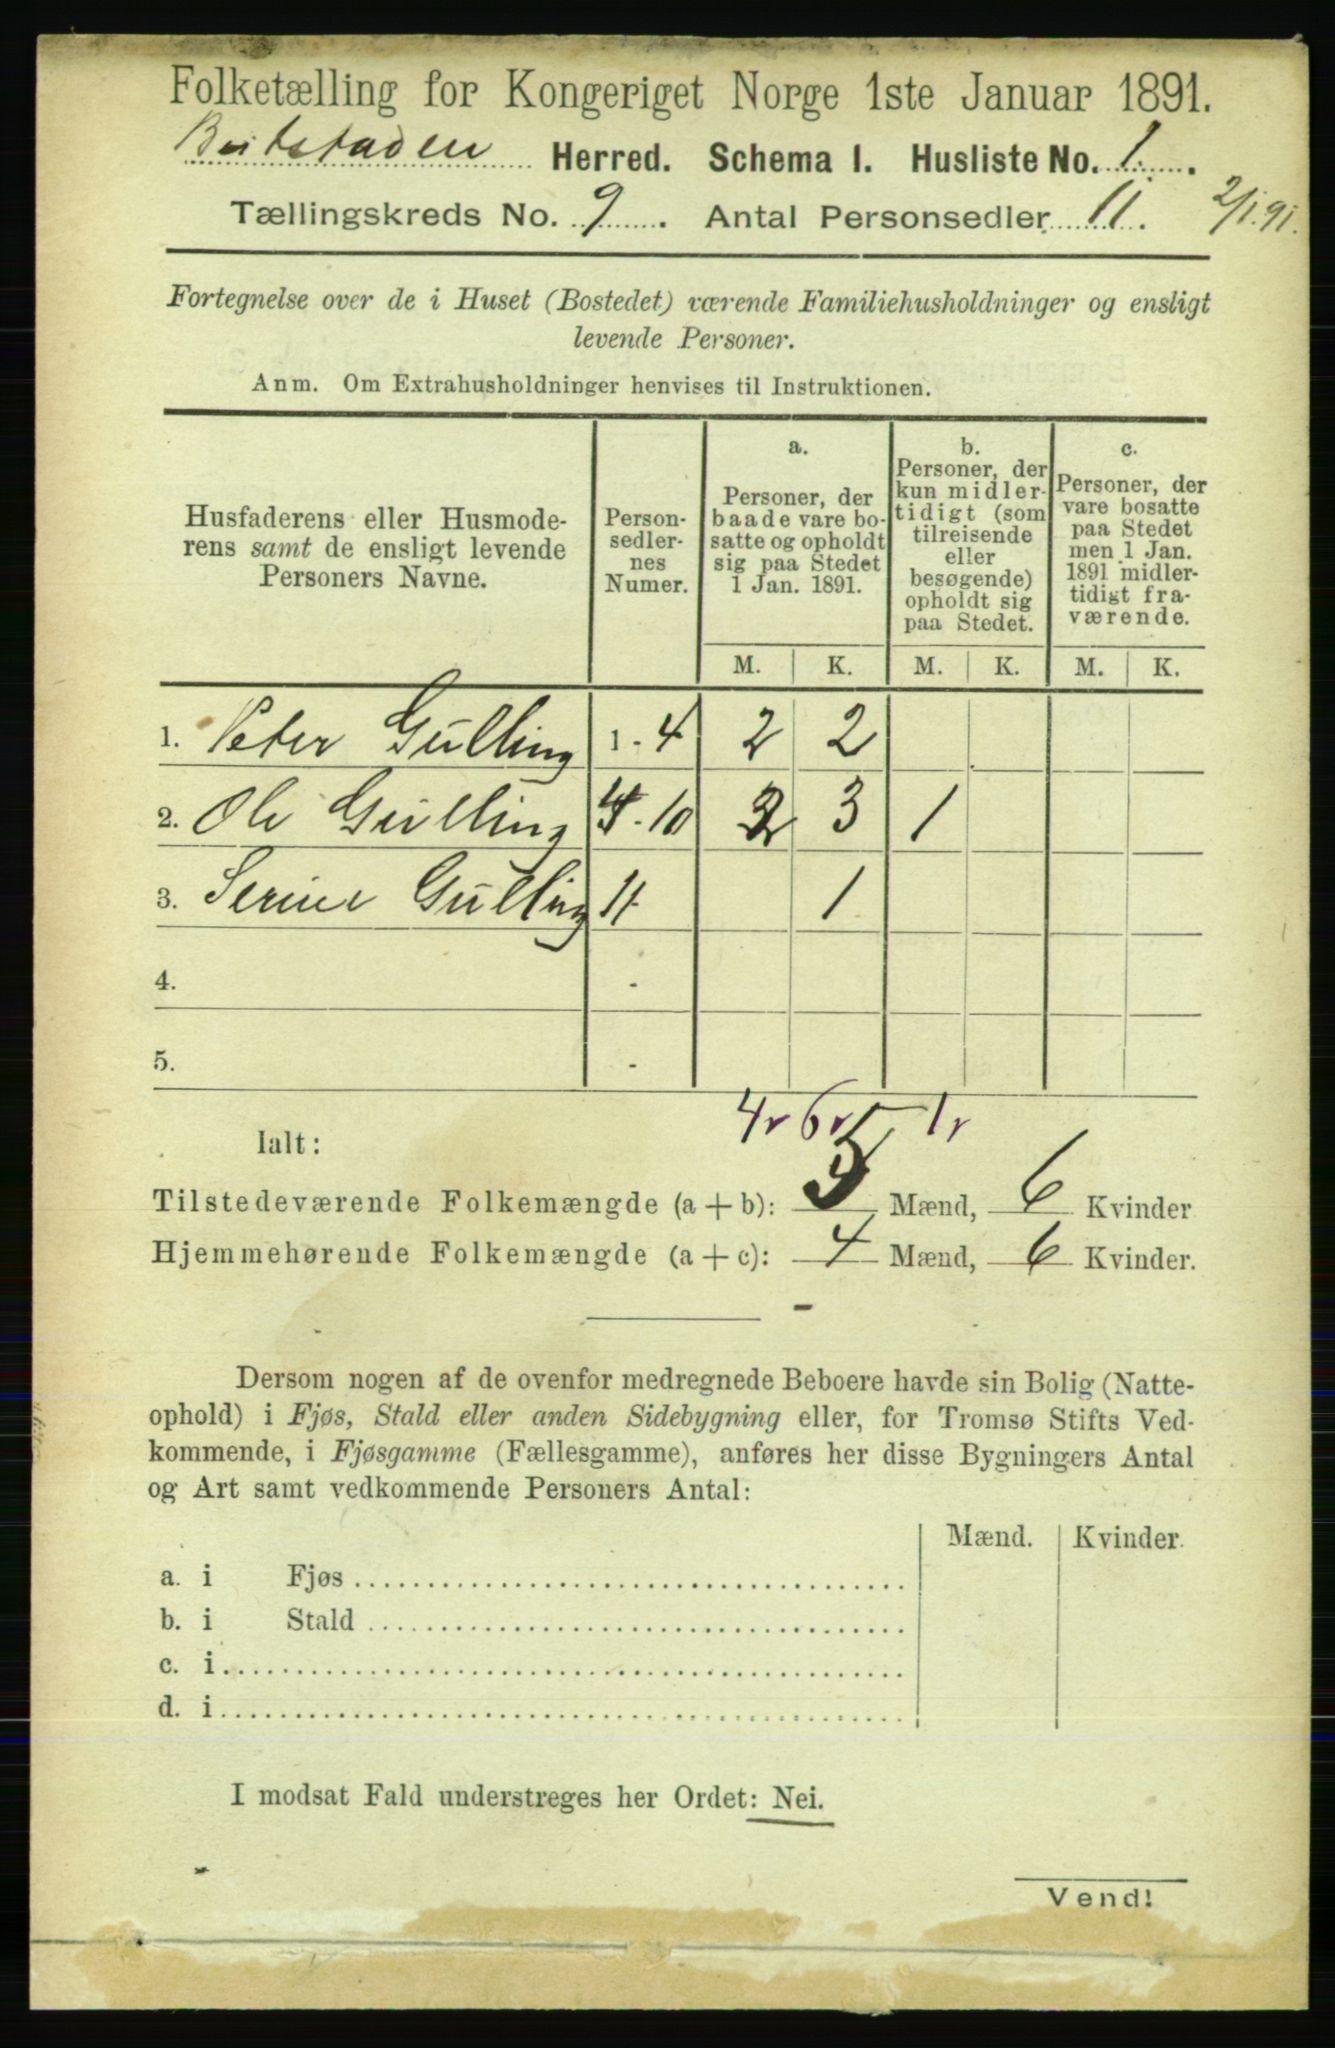 Folketælling for Kongeriget Norge 1ste Januar 1891.
Beitstaden Herred. Schema I. Husliste No. 1.
Tællingskreds No. 9. Antal Personsedler 11.
2/1.91.
Fortegnelse over de i Huset (Bostedet) værende Familiehusholdninger og ensligt
levende Personer.
Anm. Om Extrahusholdninger henvises til Instruktionen.
Husfaderens eller Husmode-
rens samt de ensligt levende
Personers Navne.
Person-
sedler-
nes
Numer.
a.
Personer, der
baade vare bo-
satte og opholdt
sig paa Stedet
1 Jan. 1891.
b.
Personer, der
kun midler-
tidigt (som
tilreisende
eller
besøgende)
opholdt sig
paa Stedet.
c.
Personer, der
vare bosatte
paa Stedet
men 1 Jan.
1891 midler-
tidigt fra-
værende.
M. K. M. K. M. K.
1. Peter Gulling 1 - 4 2 2
2. Ole Gulling - 10 2 3 1
3. Serine Gulling 11 1
4. -
5. -
4 6 1
Ialt:
Tilstedeværende Folkemængde (a + b): 5 Mænd, 6 Kvinder
Hjemmehørende Folkemængde (a + c): 4 Mænd, 6 Kvinder.
Dersom nogen af de ovenfor medregnede Beboere havde sin Bolig (Natte-
ophold) i Fjøs, Stald eller anden Sidebygning eller, for Tromsø Stifts Ved-
kommende, i Fjøsgamme (Fællesgamme), anføres her disse Bygningers Antal
og Art samt vedkommende Personers Antal:
Mænd. Kvinder.
a. i Fjøs
b. i Stald
c. i
d. i
I modsat Fald understreges her Ordet: Nei.
Vend!